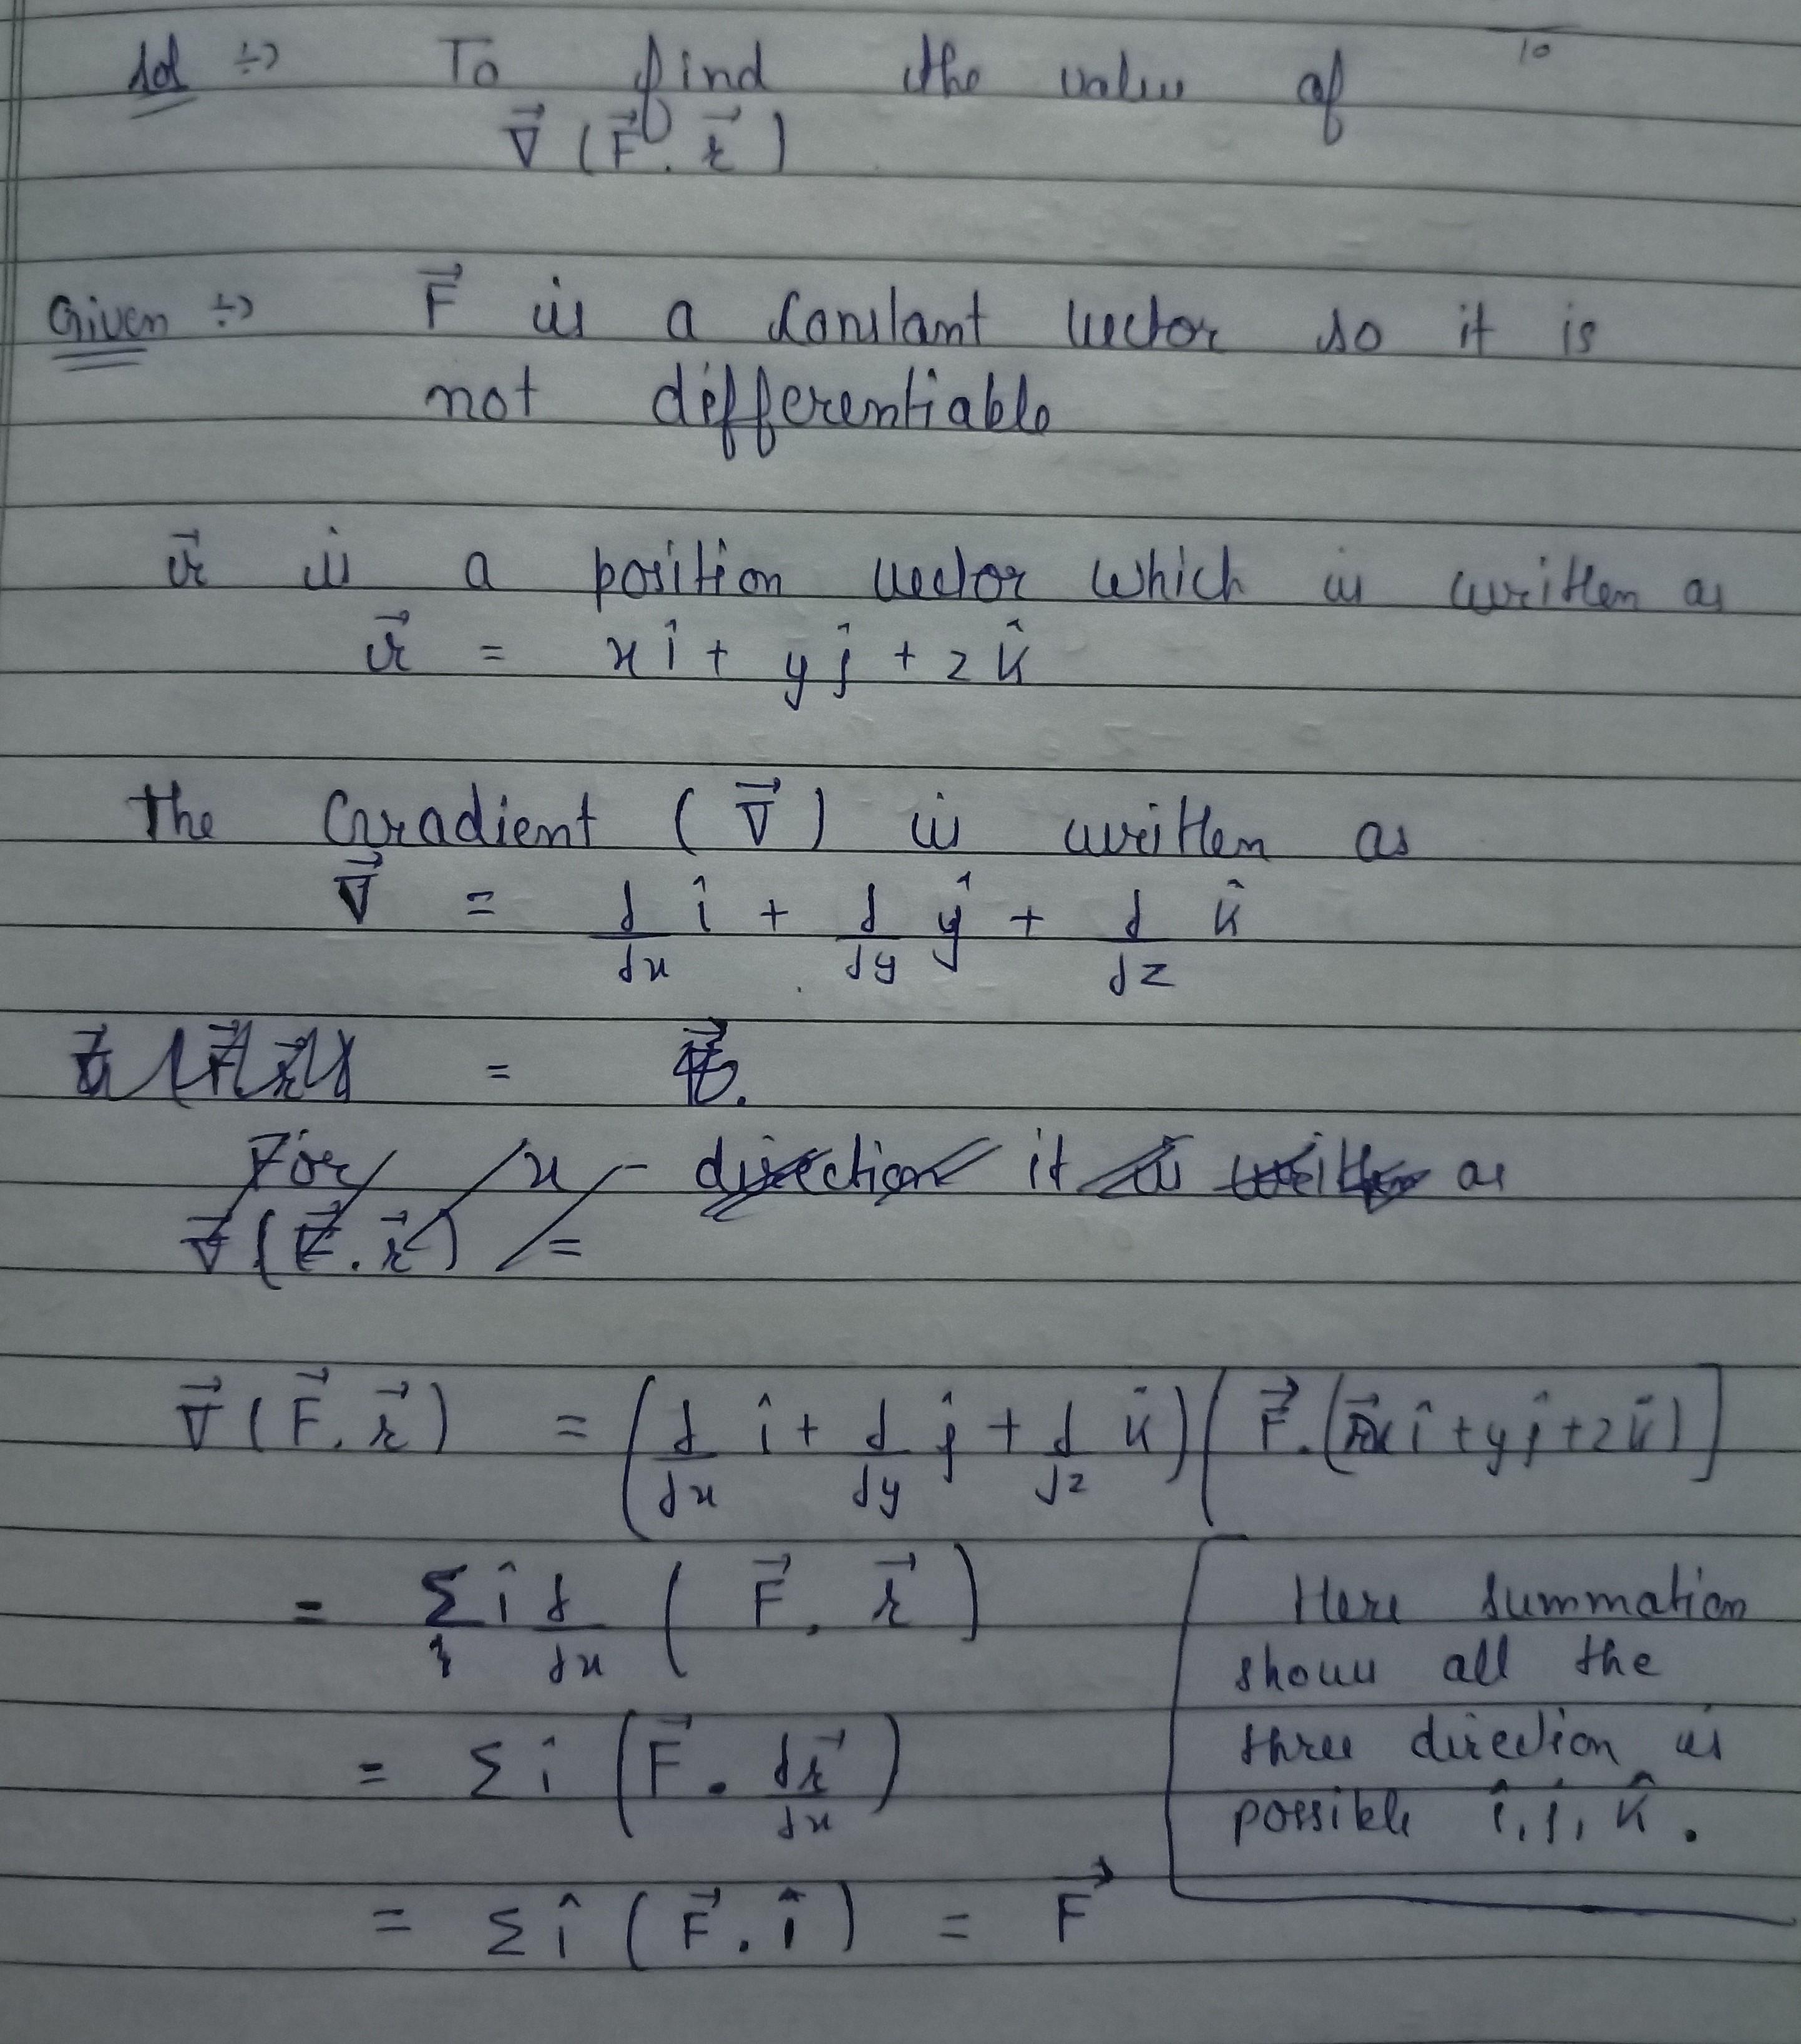 10
Sol ÷) To find the value of
∇⃗ (F⃗ . r⃗ )
Given ÷) F⃗ is a constant vector so it is
not differentiable
r⃗ is a position vector which is written as
r⃗ = x î + y ĵ + z k̂
The Gradient ( ∇⃗ ) is written as
∇⃗ = d/dx î + d/dy ŷ + d/dz k̂
∇⃗ (F⃗ . r⃗) =
For x - direction it is written as
∇⃗ (F⃗ . r⃗) =
∇⃗ (F⃗ . r⃗) = (d/dx î + d/dy ĵ + d/dz k̂) [F⃗ . (x î + y ĵ + z k̂)]
= Σ î d/dx ( F⃗ . r⃗ )
= Σ î (F⃗ . dr⃗/dx)
= Σ î (F⃗ . î) = F⃗
Here summation
shows all the
three direction is
possible î, ĵ, k̂.